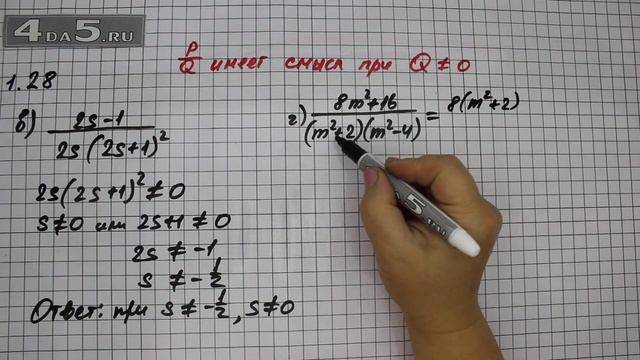 4DA5.RU
P/Q имеет смысл при Q ≠ 0
1.28
в) (2s-1)/(2s(2s+1)²)
2s(2s+1)² ≠ 0
s ≠ 0 или 2s+1 ≠ 0
2s ≠ -1
s ≠ -1/2
Ответ: при s ≠ -1/2, s ≠ 0
г) (8m²+16)/((m²+2)(m²-4)) = 8(m²+2)